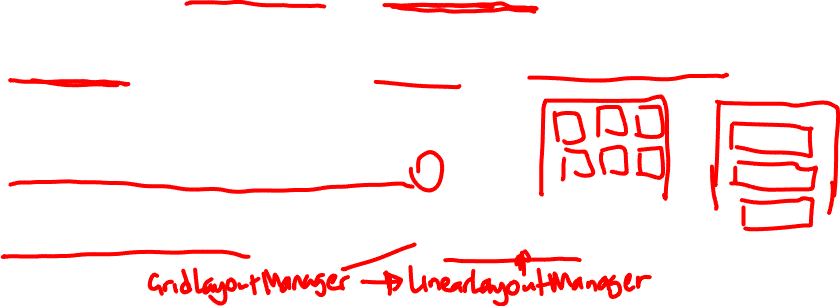 GridLayoutManager → LinearLayoutManager